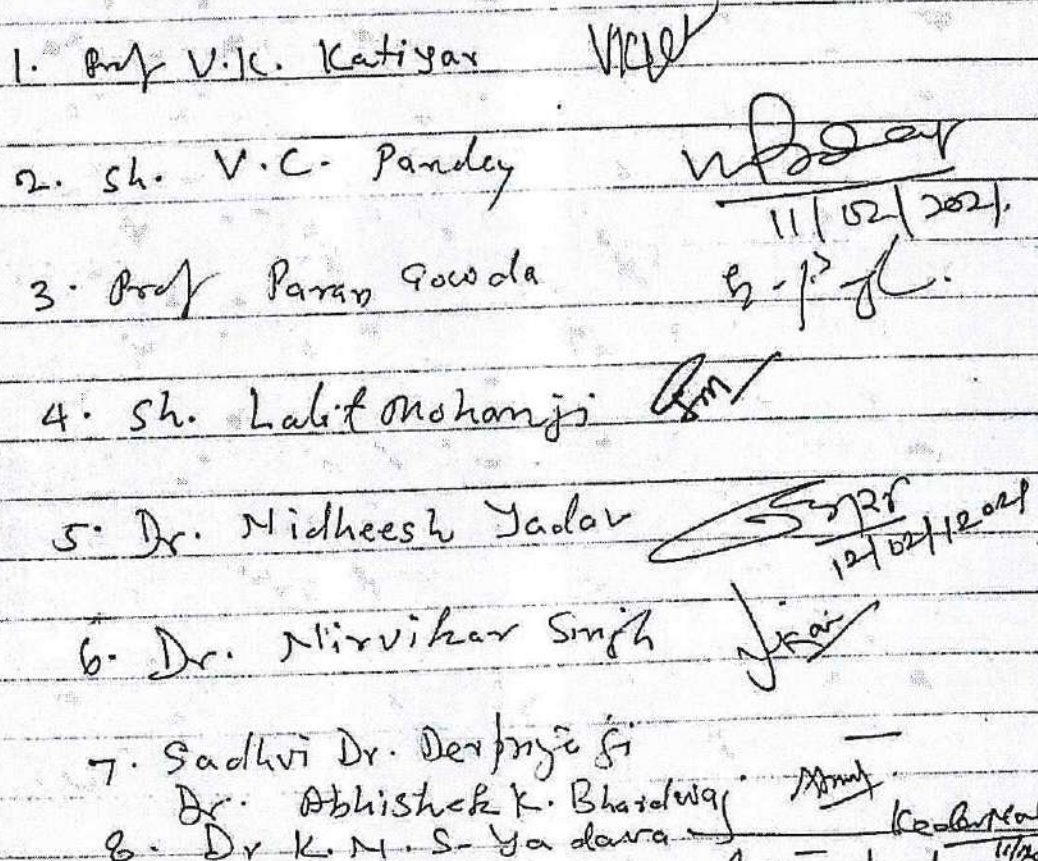 1. Prof V.K. Katiyar
2. Sh. V.C. Pandey
11/02/2021.
3. Prof Paran Gowda
4. Sh. Lalit Mohan ji
5. Dr. Nidheesh Yadav
12/02/2021
6. Dr. Nirvikar Singh
7. Sadhvi Dr. Devpriya ji —
Dr. Abhishek K. Bhardwaj
8. Dr K.N.S. Yadava